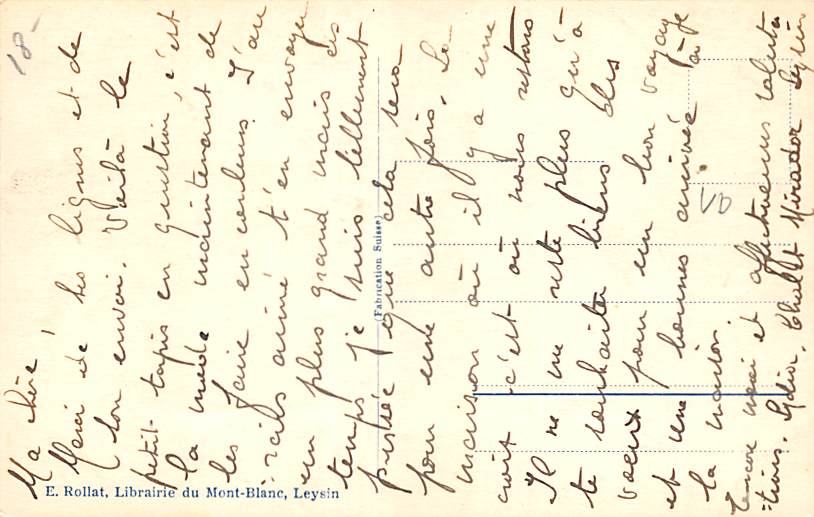 Ma chère
Merci de tes lignes et de
ton envoi. Voilà le
petit tapis en question, c'est
la mode maintenant de
les faire en couleurs. J'au
-rais aimé t'en envoyer
un plus grand mais ces
temps je suis tellement
pressée que cela sera
pour une autre fois. La
maison où il y a une
croix c'est où nous restons
Il ne me reste plus qu'à
te souhaiter bien des
vœux pour un bon voyage
et une bonnes arrivée à
la maison.
Encore merci et affectueuses saluta
-tions. Lydia. Chalet Mirador Leysin
18-
VD
(Fabrication Suisse)
E. Rollat, Librairie du Mont-Blanc, Leysin